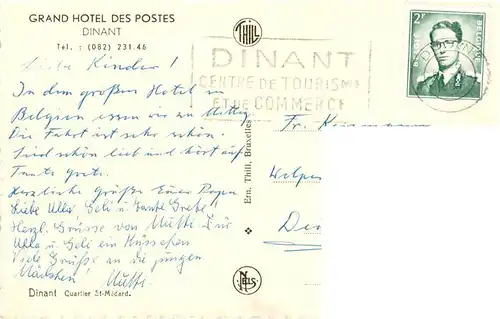 GRAND HOTEL DES POSTES
DINANT
Tel. : (082) 231.46
Liebe Kinder!
In dem großen Hotel in
Belgien essen wir zu Mittag.
Die Fahrt ist sehr schön.
Seid schön lieb und hört auf
Tante Grete.
Herzliche Grüße Euer Papa
Liebe Ulla, Geli u. Tante Grete!
Herzl. Grüsse von Mutti. Für
Ulla u. Geli ein Küsschen
Viele Grüße an die jungen
Mädchen! Mutti.
Dinant Quartier St-Médard.
THILL
Ern. Thill, Bruxelles
NELS
DINANT
CENTRE DE TOURISME
ET DE COMMERCE
2F
BELGIE
BELGIQUE
DINANT
Fr.